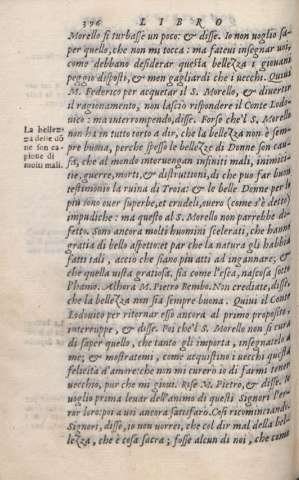 396 LIBRO
Morello si turbasse un poco: & disse. Io non voglio sa=
per quello, che non mi tocca: ma fatevi insegnar voi,
come debbano desiderar questa bellezza i giovani
peggio disposti, & men gagliardi che i vecchi. Quivi
M. Federico per acquetar il S. Morello, & divertir
il ragionamento, non lasciò rispondere il Conte Lodo=
vico: ma interrompendo, disse. Forse che'l S. Morello
non ha in tutto torto a dir, che la bellezza non è sem=
pre buona, perche spesso le bellezze di Donne son cau=
sa, che al mondo intervengan infiniti mali, inimici=
tie, guerre, morti, & distruttioni, di che puo far buon
testimonio la ruina di Troia: & le belle Donne per lo
piu sono over superbe, et crudeli, overo (come s'è detto)
impudiche: ma questo al S. Morello non parrebbe di=
fetto. Sono ancora molti huomini scelerati, che hanno
gratia di bello aspetto: et par che la natura gli habbia
fatti tali, acciò che siano piu atti ad ingannare; &
che quella vista gratiosa, sia come l'esca, nascosa sotto
l'hamo. Alhora M. Pietro Bembo. Non crediate, disse,
che la bellezza non sia sempre buona. Quivi il Conte
Lodovico per ritornar esso ancora al primo proposito,
interruppe, & disse. Poi che'l S. Morello non si cura
di saper quello, che tanto gli importa, insegnatelo à
me; & mostratemi, come acquistino i vecchi questa
felicità d'amore: che non mi curerò io di farmi tener
vecchio, pur che mi giovi. Rise M. Pietro, & disse. Io
voglio prima levar dell'animo di questi Signori l'er=
ror loro: poi a voi ancora satisfarò. Cosi ricominciando.
Signori, disse, io non vorrei, che col dir mal della bel=
lezza, che è cosa sacra; fosse alcun di noi, che come
La bellez=
za delle dō
ne son ca=
gione di
molti mali.